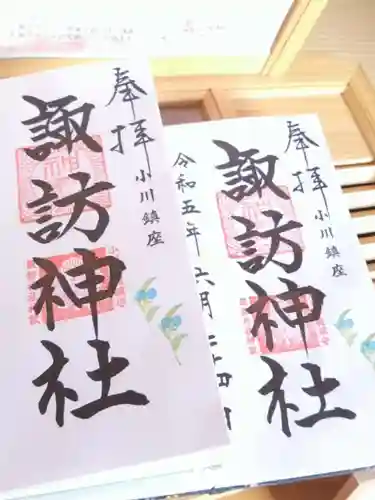 奉拝
小川鎮座
諏訪神社
奉拝
小川鎮座
諏訪神社
令和五年六月二十四日